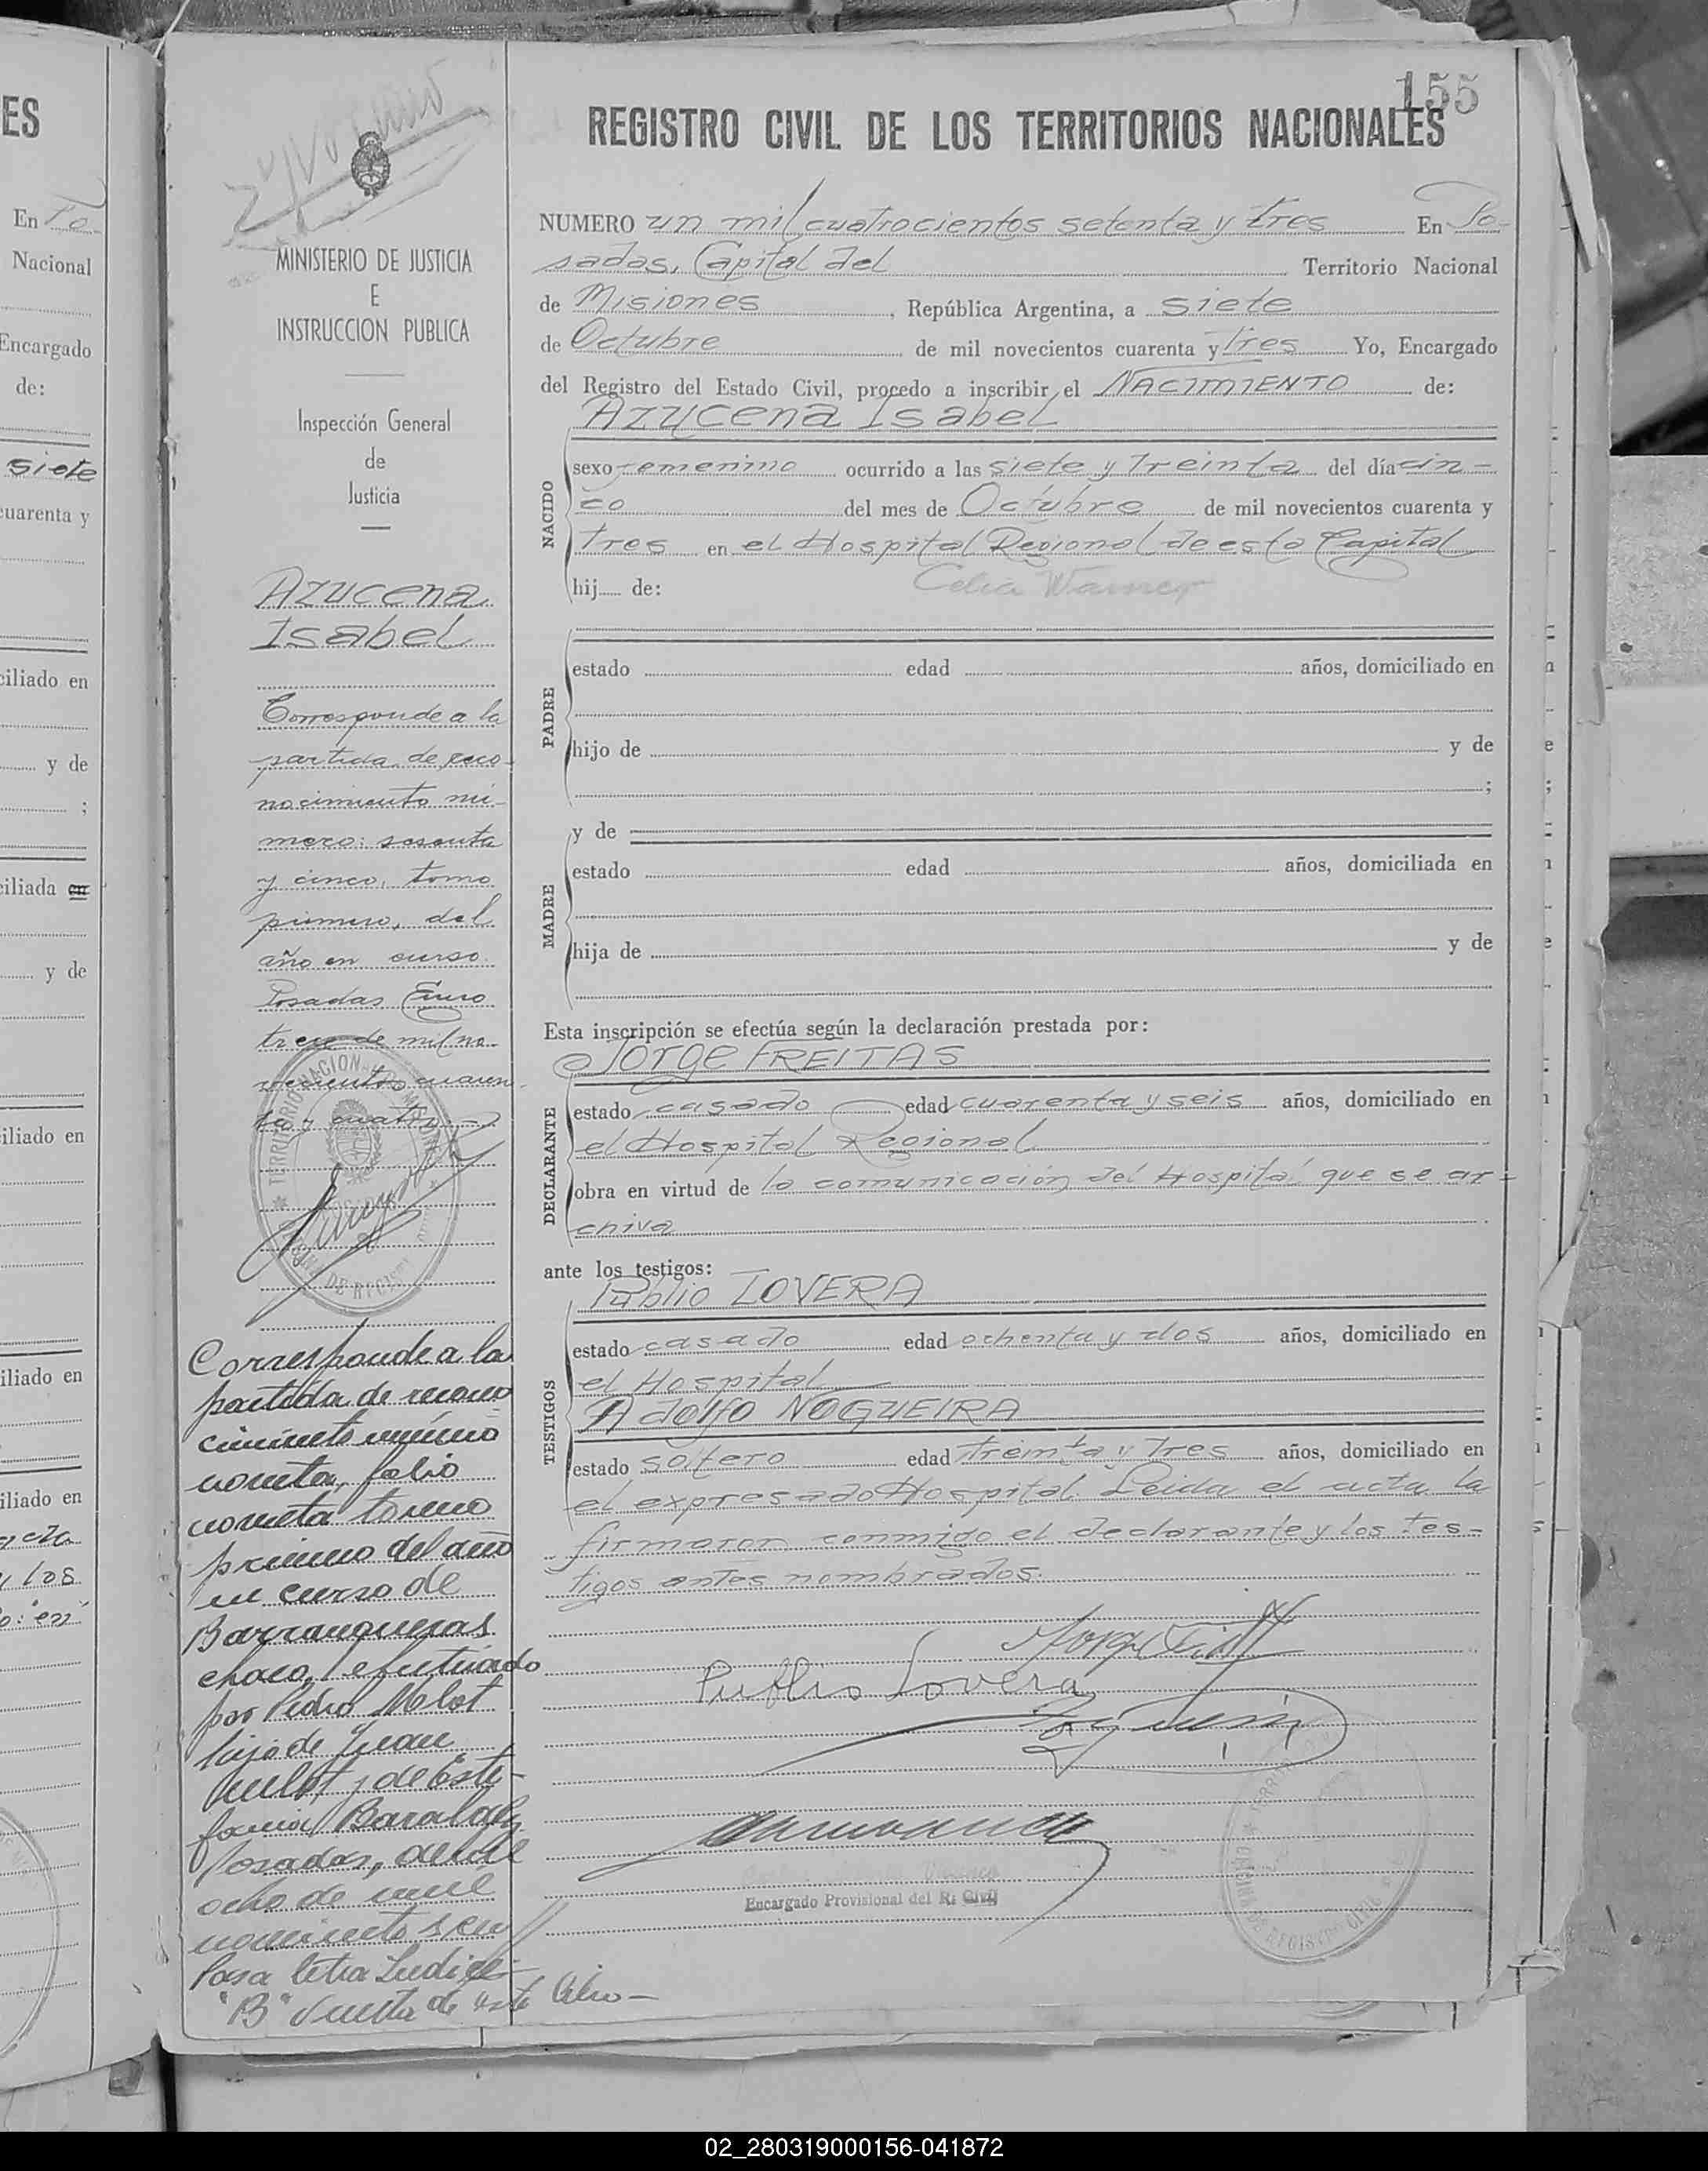 ES
En Po-
Nacional
Encargado
de:
siete
cuarenta y
ciliado en
y de
;
ciliada en
y de
iliado en
iliado en
iliado en
acta
y los
155
REGISTRO CIVIL DE LOS TERRITORIOS NACIONALES
MINISTERIO DE JUSTICIA
E
INSTRUCCION PUBLICA
Inspección General
de
Justicia
Azucena
Isabel
Corresponde a la
partida de reco-
nocimiento nú-
mero: sesenta
y cinco, tomo
primero, del
año en curso.
Posadas Enero
trece de mil no-
vecientos cuaren-
ta y cuatro.
Corresponde a la
partida de recono
cimiento número
noventa, folio
noventa tomo
primero del año
en curso de
Barranqueras
chaco, efectuado
por Pedro Melot
hijo de Juan
Melot y de Este-
fania
Posadas,
ocho de mil
novecientos
Pasa letra Indice
"B" vuelta de este libro-
NUMERO un mil cuatrocientos setenta y tres En Po-
sadas, Capital del Territorio Nacional
de Misiones, República Argentina, a siete
de Octubre de mil novecientos cuarenta y tres Yo, Encargado
del Registro del Estado Civil, procedo a inscribir el NACIMIENTO de:
Azucena Isabel
NACIDO
sexo femenino ocurrido a las siete y treinta del día cin-
co del mes de Octubre de mil novecientos cuarenta y
tres en el Hospital Regional de esta Capital
hij de: Celia
PADRE
estado edad años, domiciliado en
hijo de y de
;
MADRE
y de
estado edad años, domiciliada en
hija de y de
Esta inscripción se efectúa según la declaración prestada por:
Jorge FREITAS
DECLARANTE
estado casado edad cuarenta y seis años, domiciliado en
el Hospital Regional
obra en virtud de la comunicación del Hospital que se ar-
chiva
ante los testigos:
Publio LOVERA
TESTIGOS
estado casado edad ochenta y dos años, domiciliado en
el Hospital
Adolfo NOGUEIRA
estado soltero edad treinta y tres años, domiciliado en
el expresado Hospital. Leida el acta la
firmaron conmigo el declarante y los tes-
tigos antes nombrados.
Publio Lovera
Encargado Provisional del R. Civil
02_280319000156-041872